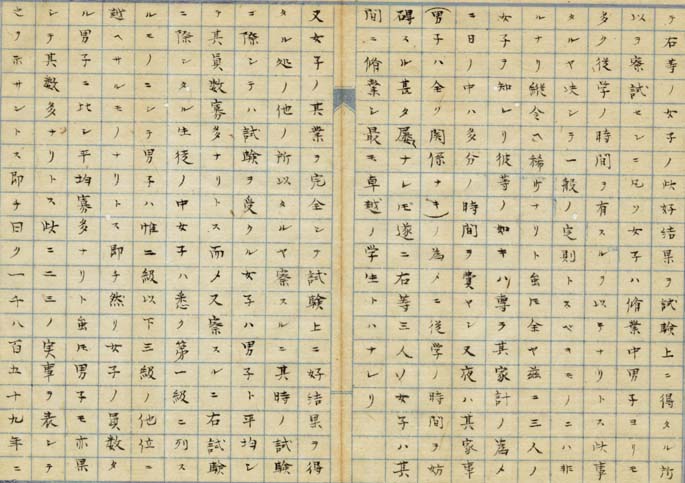 ヲ右等ノ女子ノ此好結果ヲ試験上ニ得タル所
以ヲ察試セシニ凡ソ女子ハ脩業中男子ヨリモ
多ク従学ノ時間ヲ有スルヲ以テナリトス此事
タルヤ決シテ一般ノ定則トスベキモノニハ非
ルナリ縦令ヘ稀ナリト虽𪜈全ヤ茲ニ三人ノ
女子ヲ知レリ彼等ノ如キハ専ラ其家計ノ為メ
ニ日ノ中ハ多分ノ時間ヲ費ヤシ又夜ハ其家事
(男子ハ全ク関係ナキ)ノ為メニ従学ノ時間ヲ妨
碍スル甚タ屡ナレ𪜈遂ニ右等三人ノ女子ハ其
間ニ脩業シ最モ卓越ノ学生トハナレリ
又女子ノ其業ヲ完全シテ試験上ニ好結果ヲ得
タル処ノ他ノ所以タルヤ察スルニ其時ノ試験
ニ際シテハ試験ヲ受クル女子ハ男子ト平均シ
テ其員数寡多ナリトス而メ又察スルニ右試験
ニ際シタル生徒ノ中女子ハ悉ク第一級ニ列ス
ルモノニシテ男子ハ惟二級以下三級ノ他位ニ
越ヘサルモノナリトス即チ然リ女子ノ員数タ
ル男子ニ比シ平均寡多ナリト虽𪜈男子モ亦果
シテ其数多ナリトス此ニ二三ノ実事ヲ表シテ
之ヲ示サントス即チ曰ク一千八百五十九年ニ